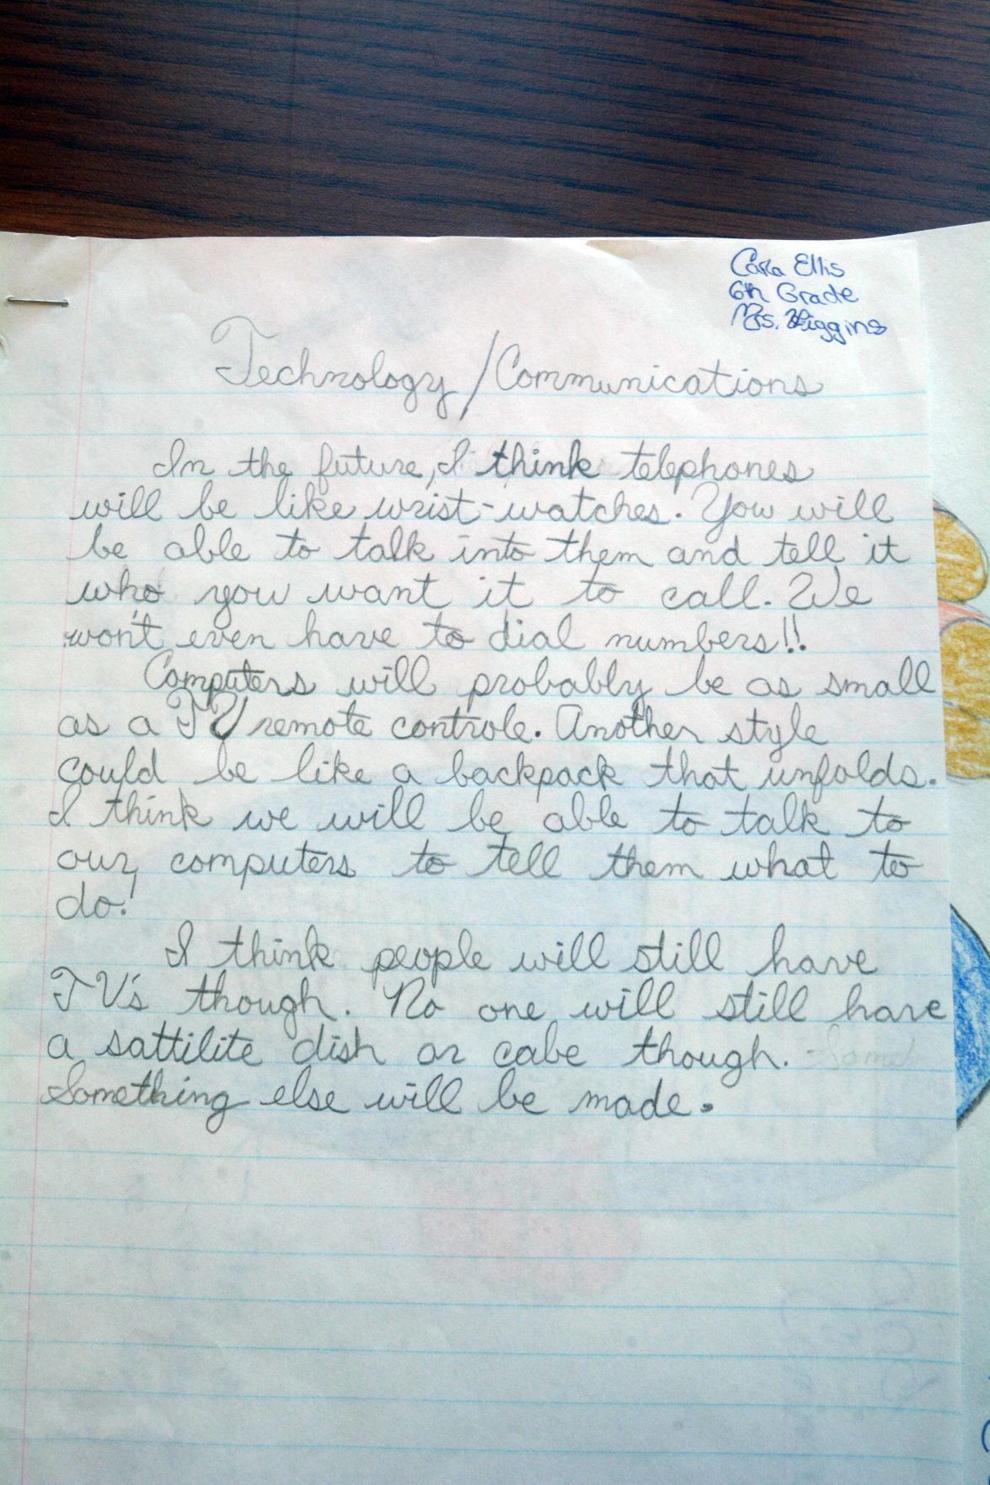 Cara Ellis
6th Grade
Mrs. Higgins
Technology/Communications
In the future, I think telephones
will be like wrist-watches. You will
be able to talk into them and tell it
who you want it to call. We
won't even have to dial numbers!!
Computers will probably be as small
as a TV remote controle. Another style
could be like a backpack that unfolds.
I think we will be able to talk to
our computers to tell them what to
do!
I think people will still have
TV's though. No one will still have
a sattilite dish or cabe though. Someth
Something else will be made.